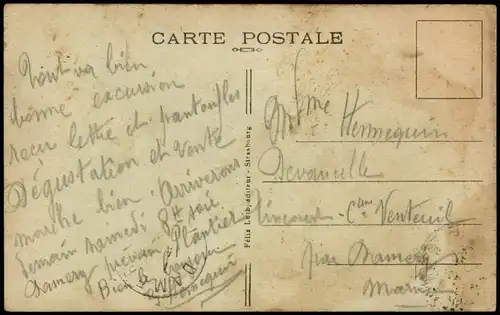 CARTE POSTALE
Tout va bien
bonne excursion
reçu lettre et pantoufles
Dégustation et vente
marche bien. Arriverons
demain samedi 8h soir
Damery prévenir Plantier
Bien
Hennequin
Félix Luib, éditeur - Strasbourg
Mme Hennequin
Devancelle
Tincourt - Cne Venteuil
par Damery
Marne